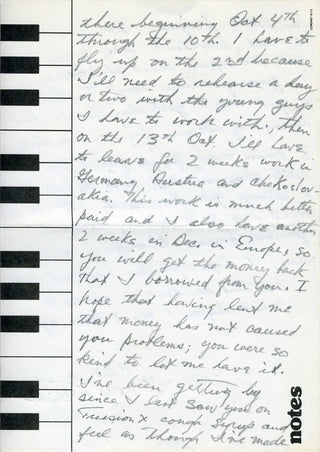 there beginning Oct 4th
through the 10th. I have to
fly up on the 2nd because
I'll need to rehearse a day
or two with the young guys
I have to work with, then
on the 13th Oct. I'll have
to leave for 2 weeks work in
Germany, Austria and
This work is much better
paid and I also have another
2 weeks in Dec. in Europe, so
you will get the money back
that I borrowed from you. I
hope that having lent me
that money has not caused
you problems; you were so
kind to let me have it.
I've been getting by
since I last saw you on
cough syrup and
feel as though I've made
notes